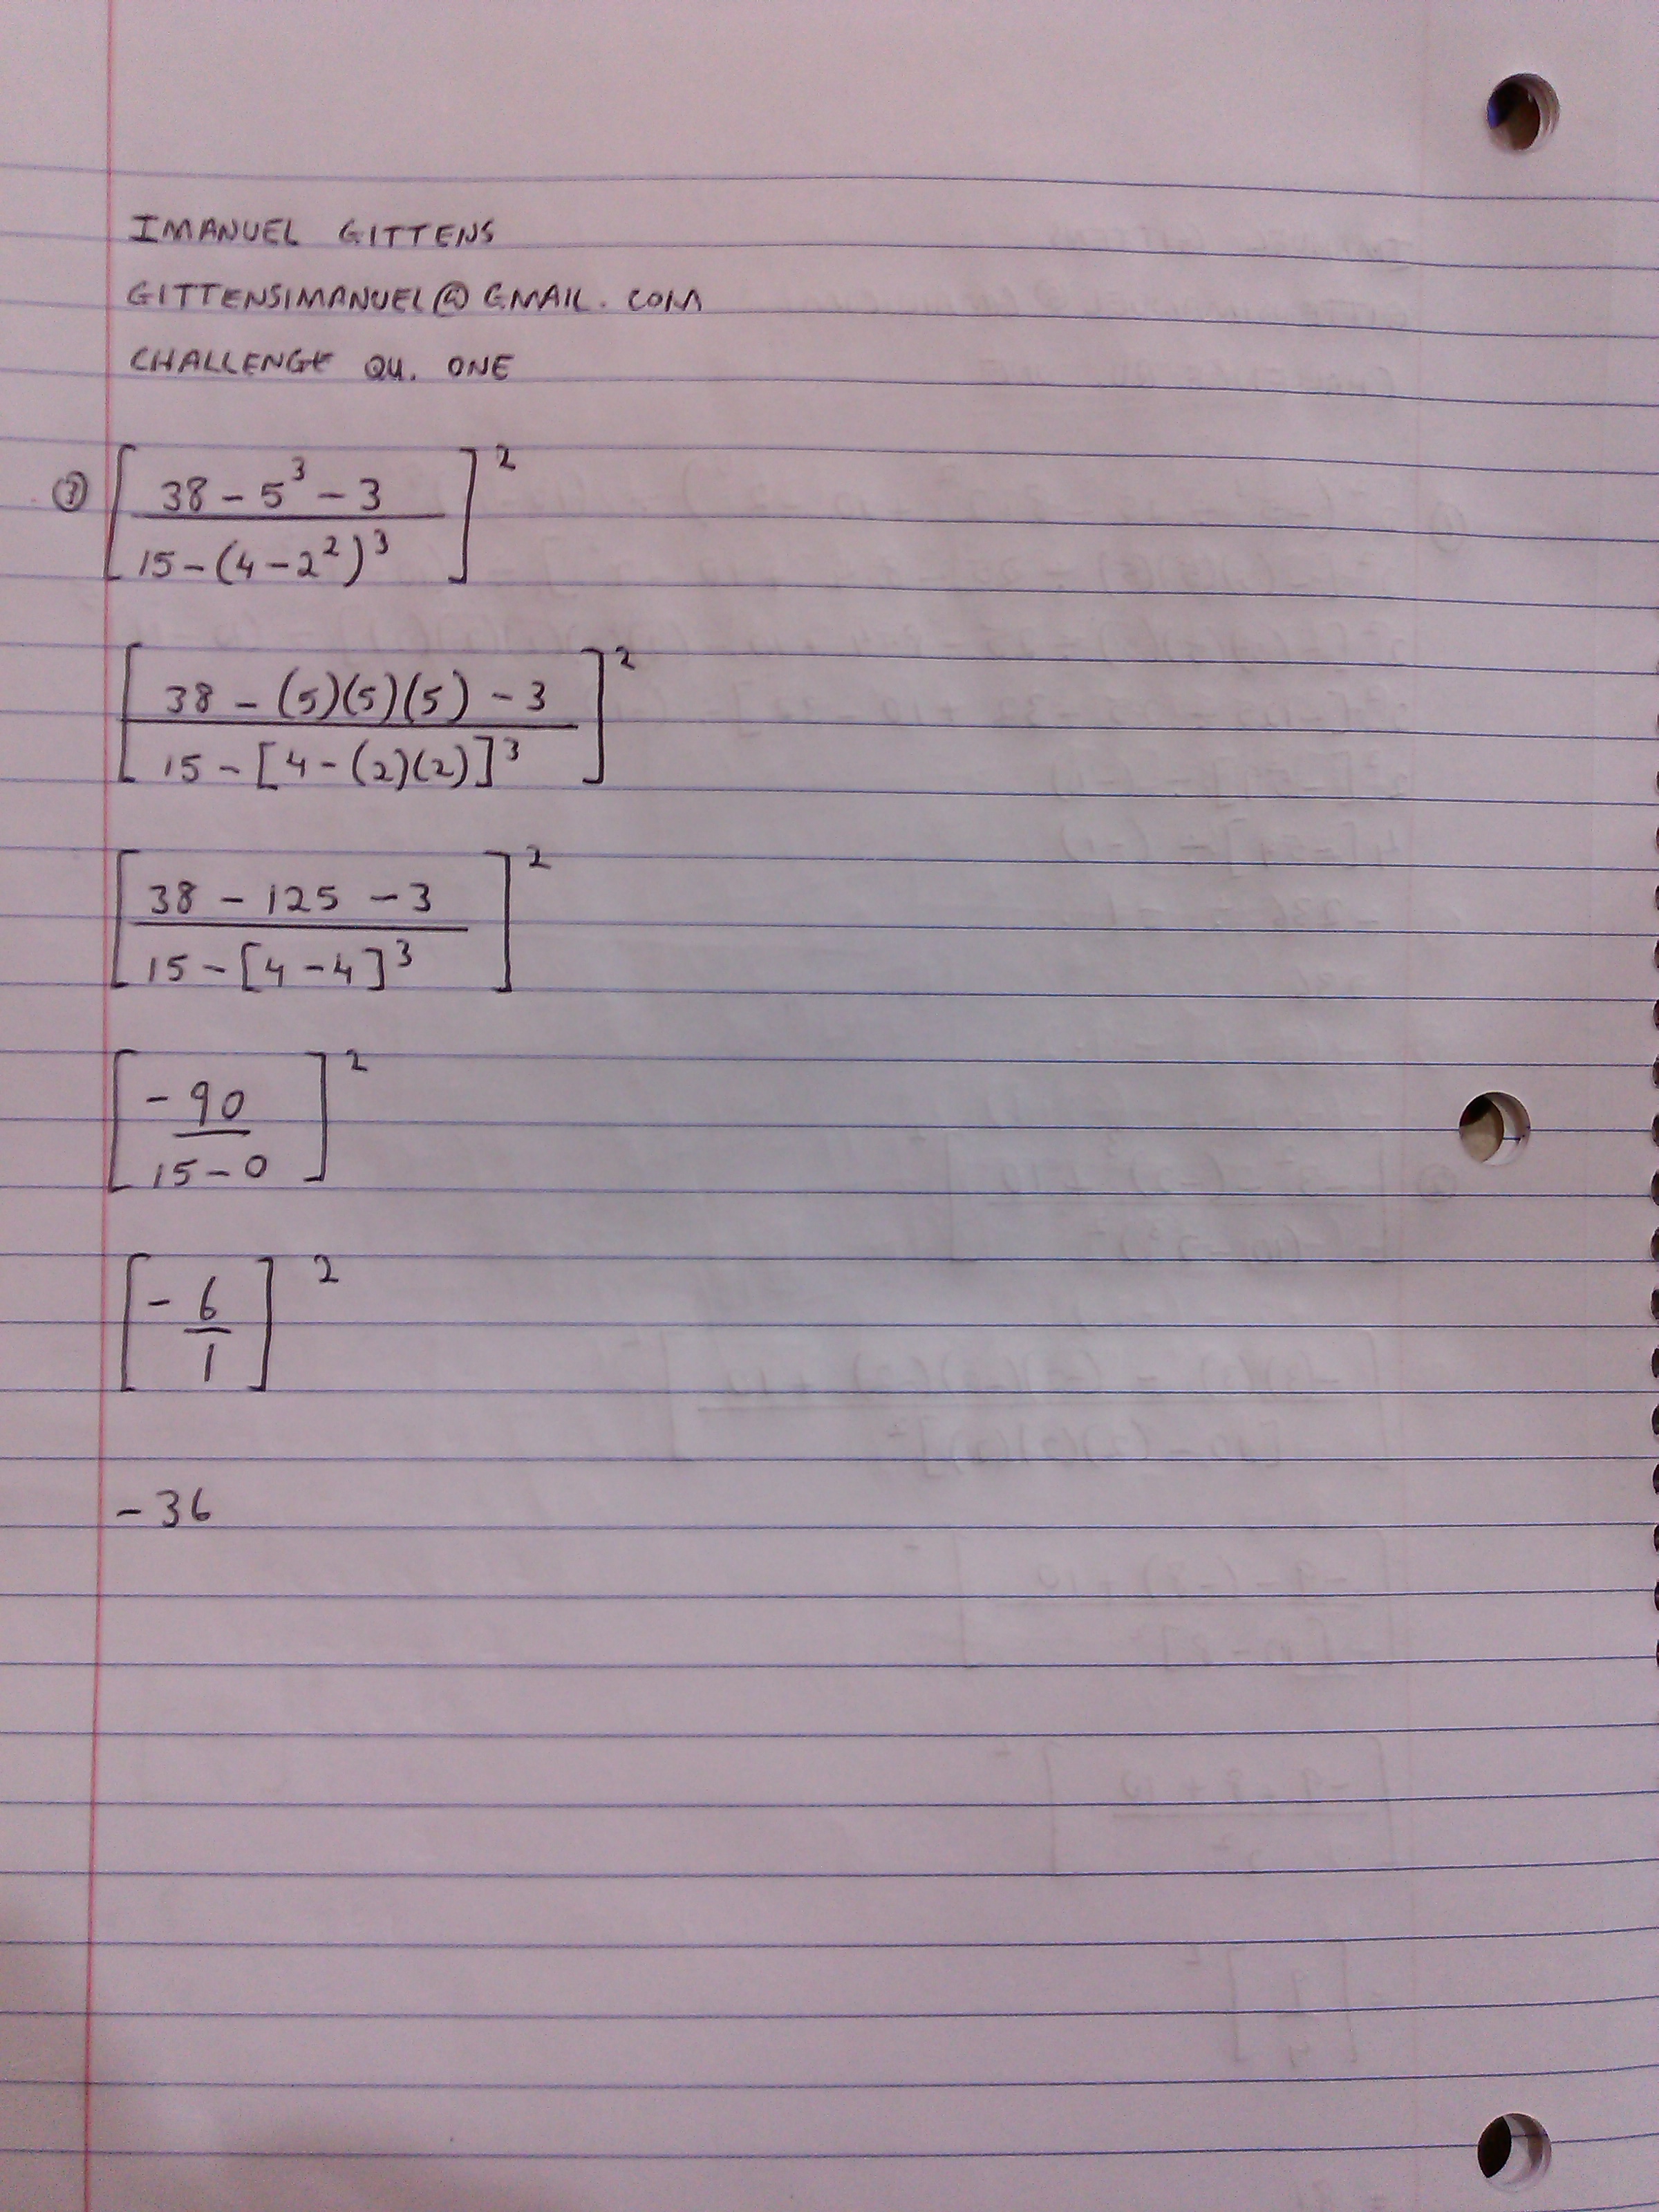 IMANUEL GITTENS
GITTENSIMANUEL@GMAIL.COM
CHALLENGE QU. ONE
③ [ (38 - 5³ - 3) / (15 - (4 - 2²)³) ]²
[ (38 - (5)(5)(5) - 3) / (15 - [4 - (2)(2)]³) ]²
[ (38 - 125 - 3) / (15 - [4 - 4]³) ]²
[ -90 / (15 - 0) ]²
[ -6 / 1 ]²
-36